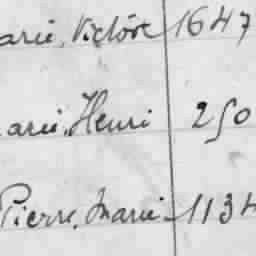 arie, Victore 1647
arie, Henri 250
Pierre, Marie 1134